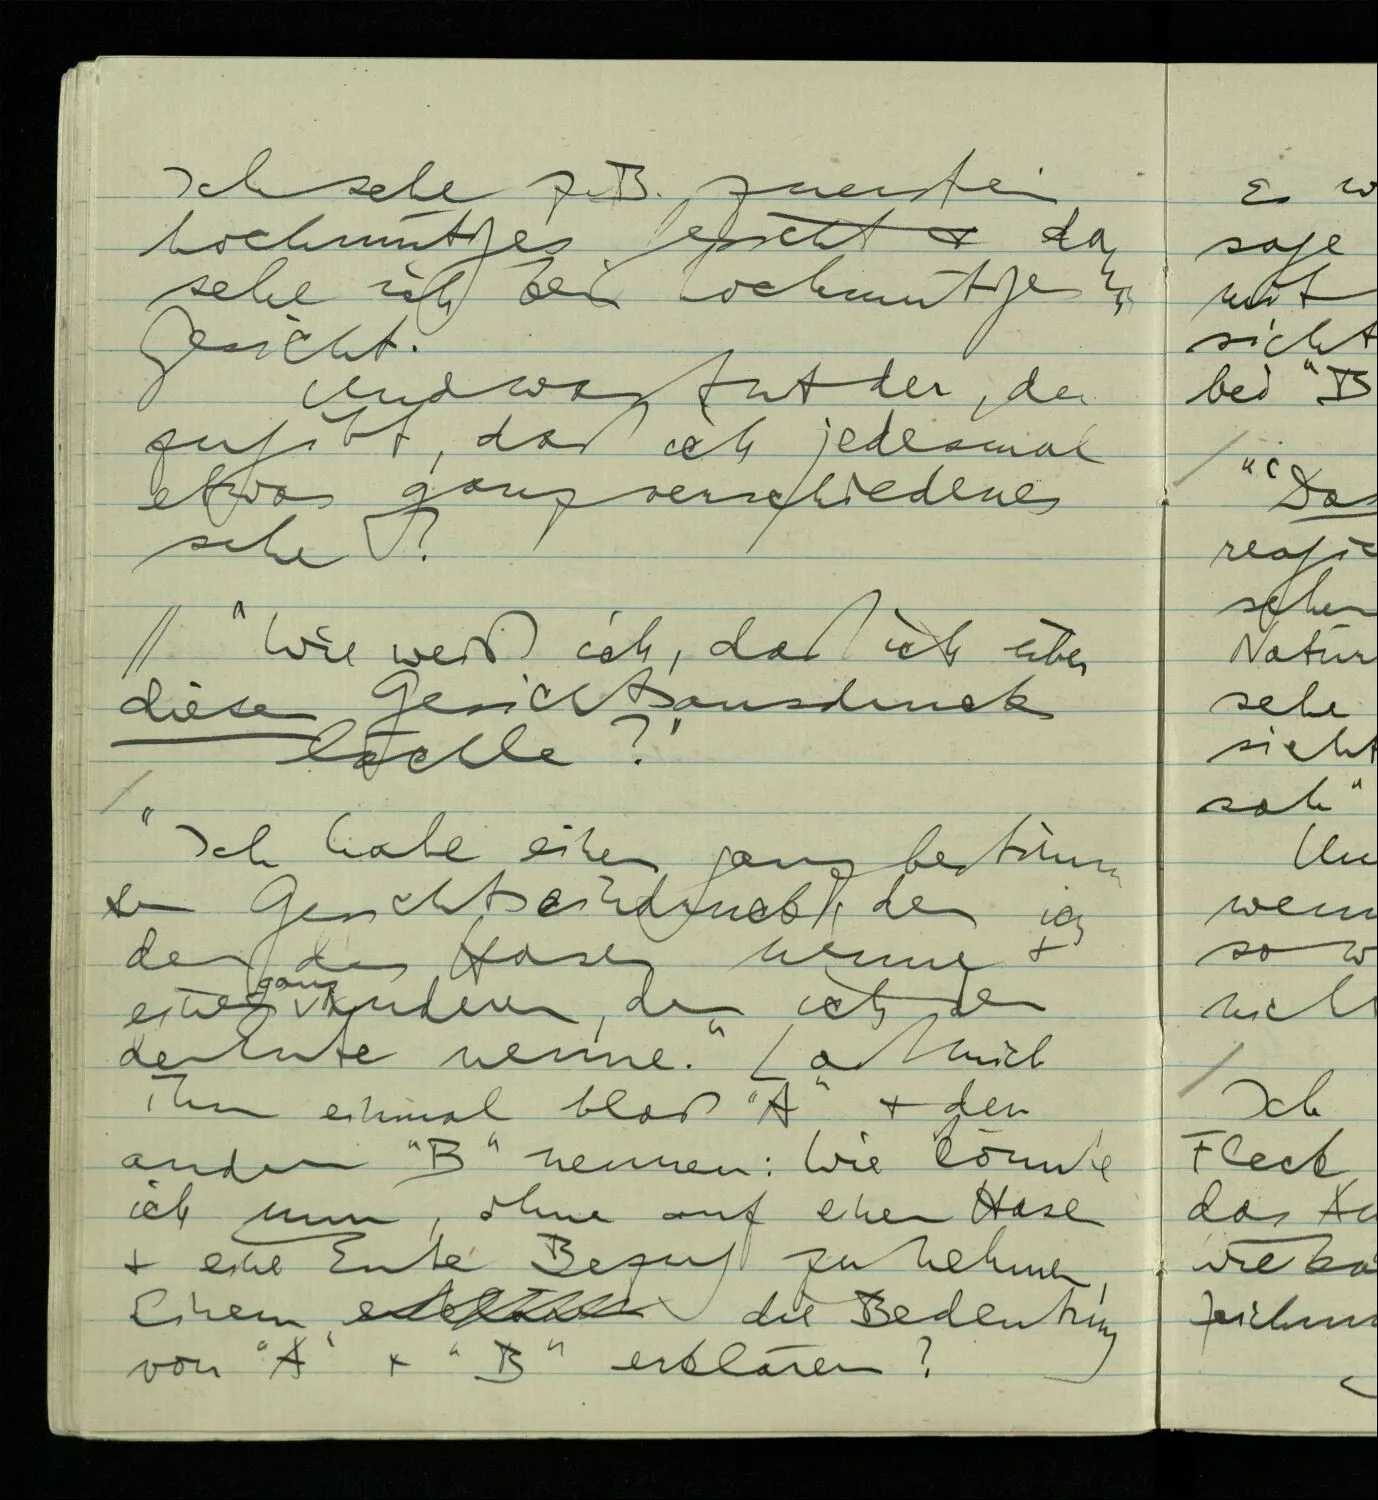 Ich sehe z.B. zuerst ein
hochmütiges Gesicht & dann
sehe ich kein hochmütiges
Gesicht.
Und was tut der, der
zugibt, daß ich jedesmal
etwas ganz verschiedenes
sehe?
// "Wie weiß ich, daß ich über
diesen Gesichtsausdruck
lächle?"
/ "Ich habe einen ganz bestimm
ten Gesichtseindruck, den ich
den des Hasen nenne &
einen ganz andern, den ich den
der Ente nenne." Laß mich
ihn einmal bloß "A" & den
andern "B" nennen: Wie könnte
ich nun, ohne auf einen Hasen
& eine Ente Bezug zu nehmen,
Einem die Bedeutung
von "A" & "B" erklären?
Es
sage
mit
sicht
bei "B
/ "Das
reagie
sehen
Natur
sehe
sieht
sah"
wenn
so w
nicht
/ Ich
Fleck
das
wie
zeichn